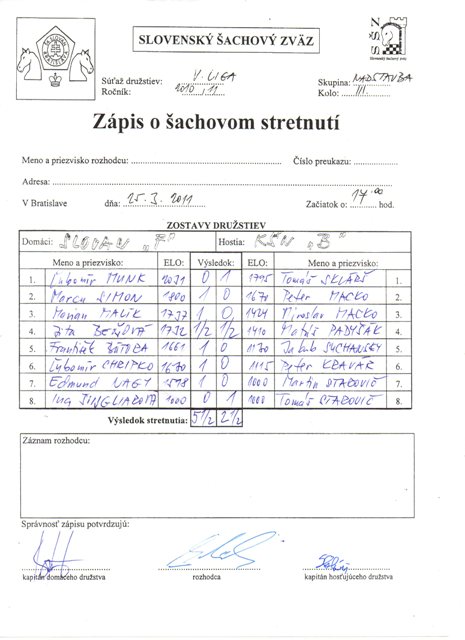 SLOVENSKÝ ŠACHOVÝ ZVÄZ
Súťaž družstiev: V. LIGA
Ročník: 2010/11
Skupina: NADSTAVBA
Kolo: III.
Zápis o šachovom stretnutí
Meno a priezvisko rozhodcu:
Číslo preukazu:
Adresa:
V Bratislave dňa: 25.3.2011 Začiatok o: 17.00 hod.
ZOSTAVY DRUŽSTIEV
Domáci: SLOVAN "F" Hostia: KŠN "B"
Meno a priezvisko: ELO: Výsledok: ELO: Meno a priezvisko:
1. Ľubomír MUNK 2031 0 1 Tomáš 1.
2. Marcu SIMON 1800 1 0 1670 Peter MACKO 2.
3. Marian MALÍK 1737 1 0 1424 Miroslav MACKO 3.
4. Zita BEŇOVÁ 1732 1/2 1/2 1410 Matúš PADYŠÁK 4.
5. František 1661 1 0 1170 Jakub SUCHANSKÝ 5.
6. Ľubomír CHRIPKO 1670 1 0 1115 Peter KRAVÁR 6.
7. Edmund NAGY 1578 1 0 1000 Martin STAROVIČ 7.
8. Ina JINGLIAROVÁ 1000 0 1 1000 Tomáš STAROVIČ 8.
Výsledok stretnutia: 5 1/2 2 1/2
Záznam rozhodcu:
Správnosť zápisu potvrdzujú:
kapitán domáceho družstva rozhodca kapitán hosťujúceho družstva